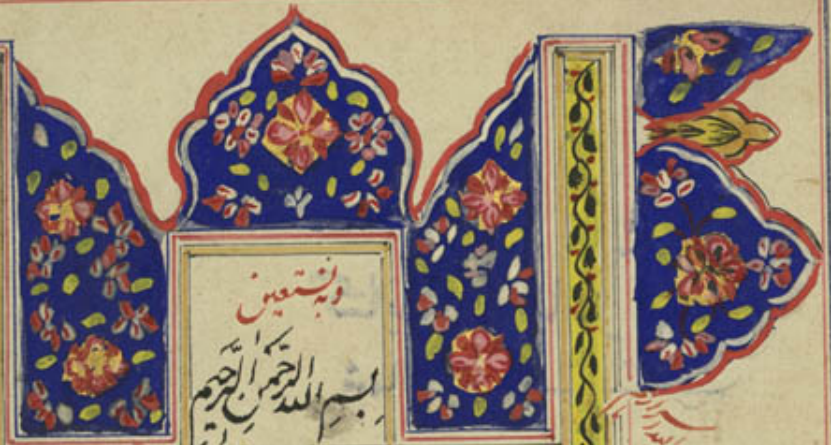 وبه نستعین
بِسمِ اللهِ الرَّحمٰنِ الرَّحِیم